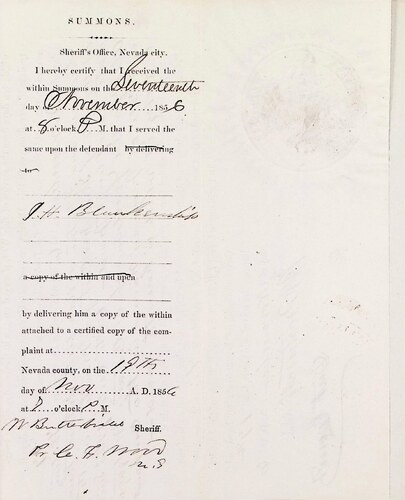 SUMMONS.
Sheriff's Office, Nevada city.
I hereby certify that I received the
within Summons on the Seventeenth
day of November 1856
at 8 o'clock P. M. that I served the
same upon the defendant by delivering
to
J. H. Blankenship
a copy of the within and upon
by delivering him a copy of the within
attached to a certified copy of the com-
plaint at
Nevada county, on the 19th
day of Nov A. D. 1856
at o'clock P. M.
W Butterfield Sheriff.
Pr. C. H. Wood